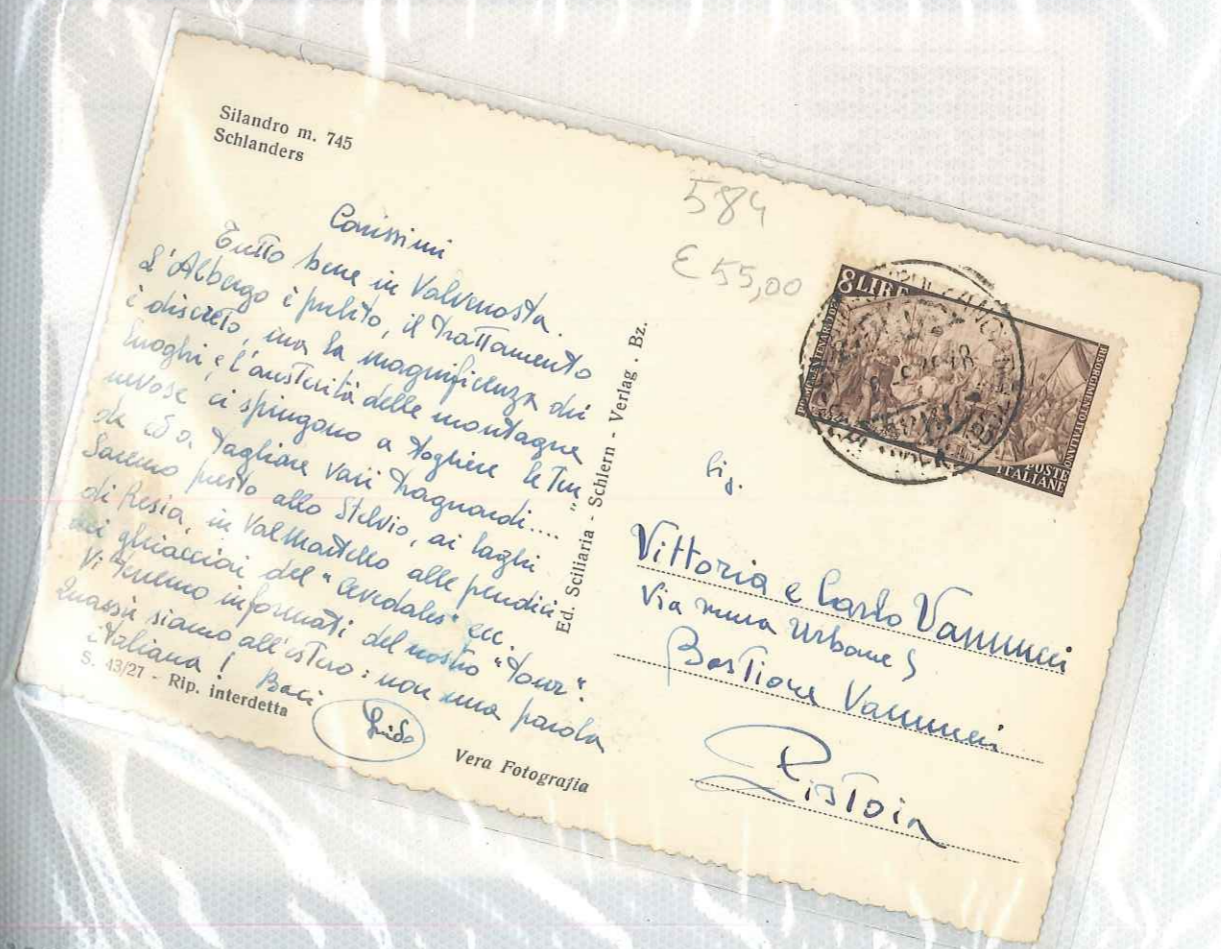 Silandro m. 745
Schlanders
584
€ 55,00
Carissimi
Tutto bene in Valvenosta.
L'Albergo è pulito, il trattamento
è discreto, ma la magnificenza dei
luoghi, e l'austerità delle montagne
nevose ci spingono a togliere le ten
de e a tagliare vari traguardi....
Saremo presto allo Stelvio, ai laghi
di Resia, in Valmartello alle pendici
dei ghiacciai del "Cevedale" ecc.
Vi terremo informati del nostro "tour".
Quassù siamo all'estero: non una parola
italiana! Baci
S. 43/27 - Rip. interdetta
Vera Fotografia
Ed. Sciliaria - Schlern - Verlag . Bz.
8 LIRE
RISORGIMENTO ITALIANO
POSTE
ITALIANE
Sig.
Vittoria e Carlo Vannucci
Via mura Urbane 5
Bastione Vannucci
Pistoia